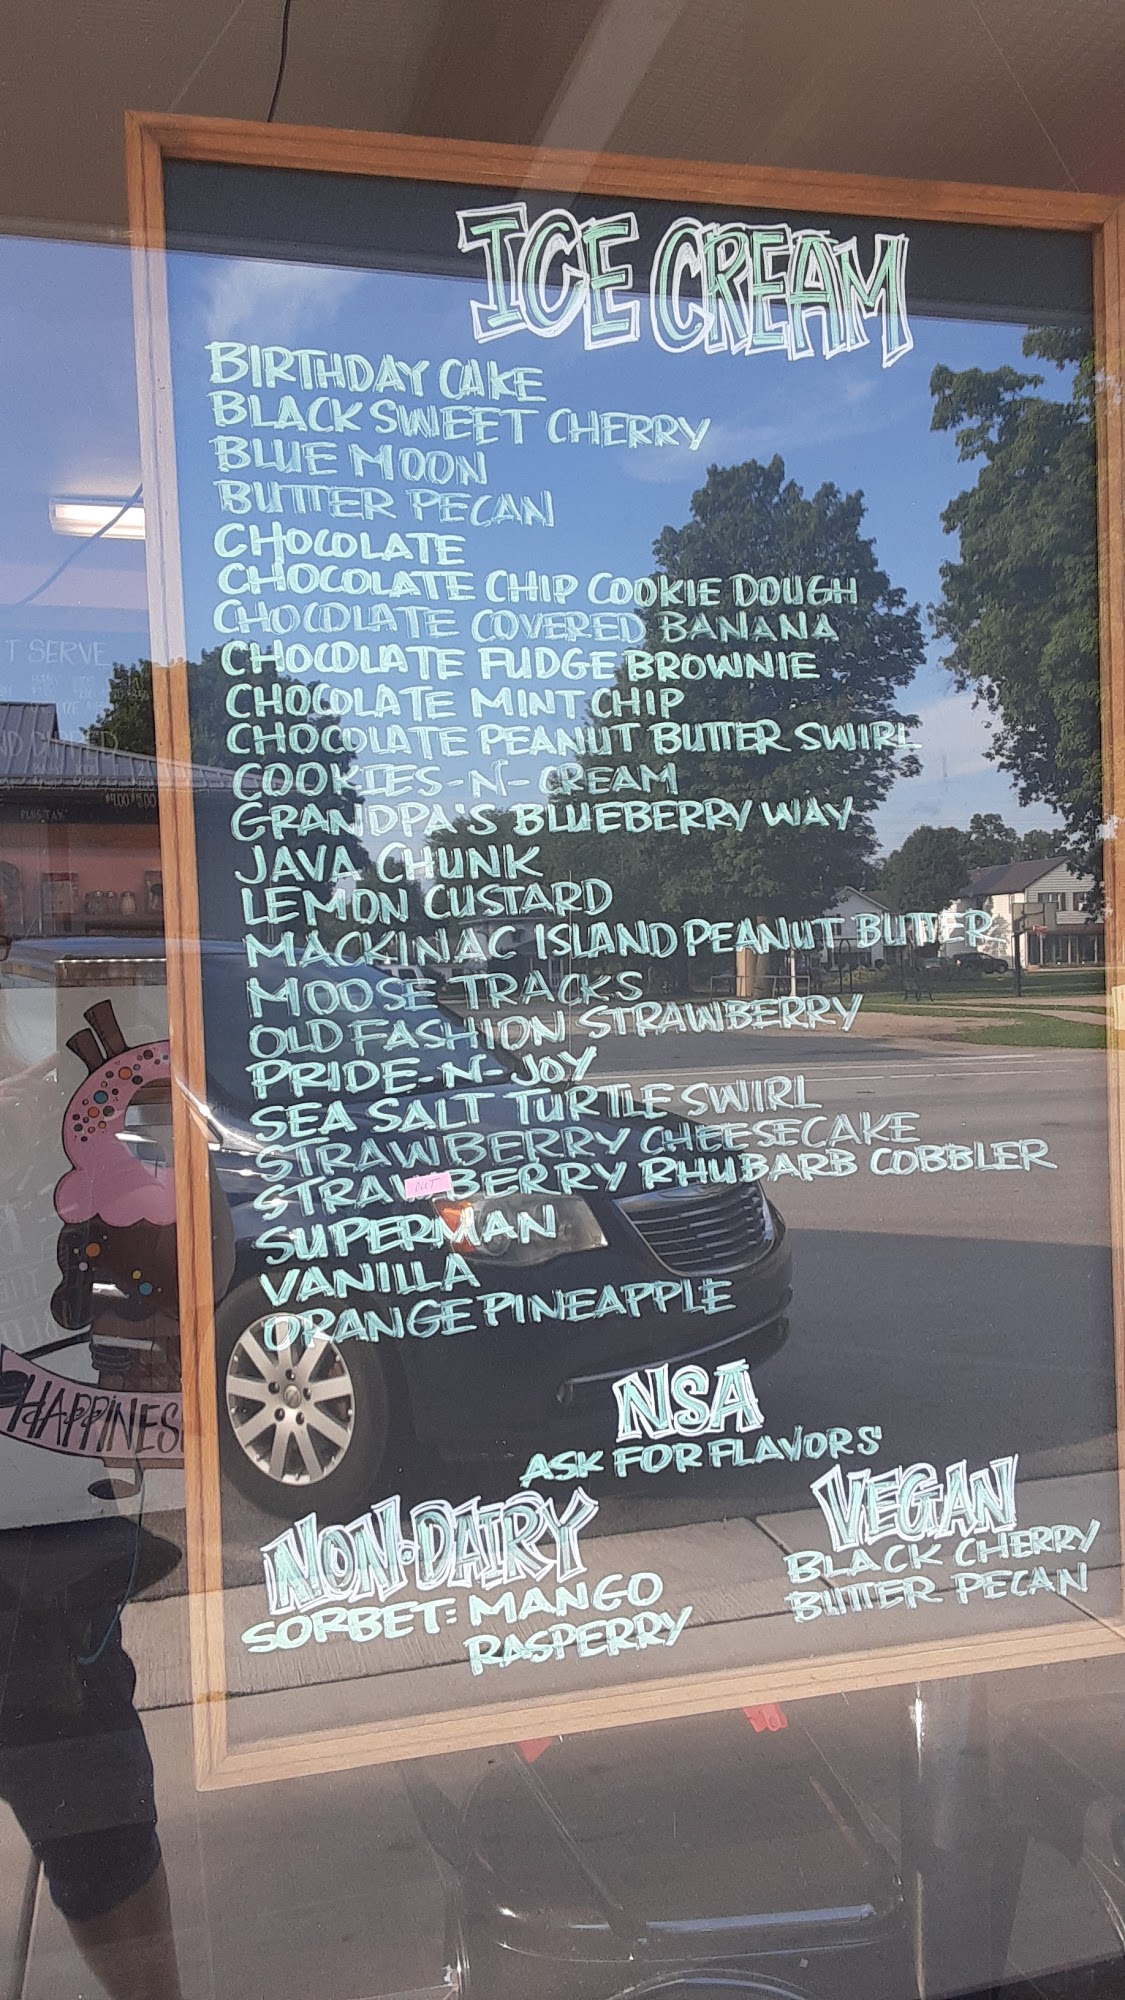 ICE CREAM
BIRTHDAY CAKE
BLACK SWEET CHERRY
BLUE MOON
BUTTER PECAN
CHOCOLATE
CHOCOLATE CHIP COOKIE DOUGH
CHOCOLATE COVERED BANANA
CHOCOLATE FUDGE BROWNIE
CHOCOLATE MINT CHIP
CHOCOLATE PEANUT BUTTER SWIRL
COOKIES-N-CREAM
GRANDPA'S BLUEBERRY WAY
JAVA CHUNK
LEMON CUSTARD
MACKINAC ISLAND PEANUT BUTTER
MOOSE TRACKS
OLD FASHION STRAWBERRY
PRIDE-N-JOY
SEA SALT TURTLE SWIRL
STRAWBERRY CHEESECAKE
STRAWBERRY RHUBARB COBBLER
OUT
SUPERMAN
VANILLA
ORANGE PINEAPPLE
NSA
ASK FOR FLAVORS
NON-DAIRY
SORBET: MANGO
RASPERRY
VEGAN
BLACK CHERRY
BUTTER PECAN
T SERVE
PLUS TAX
HAPPINES